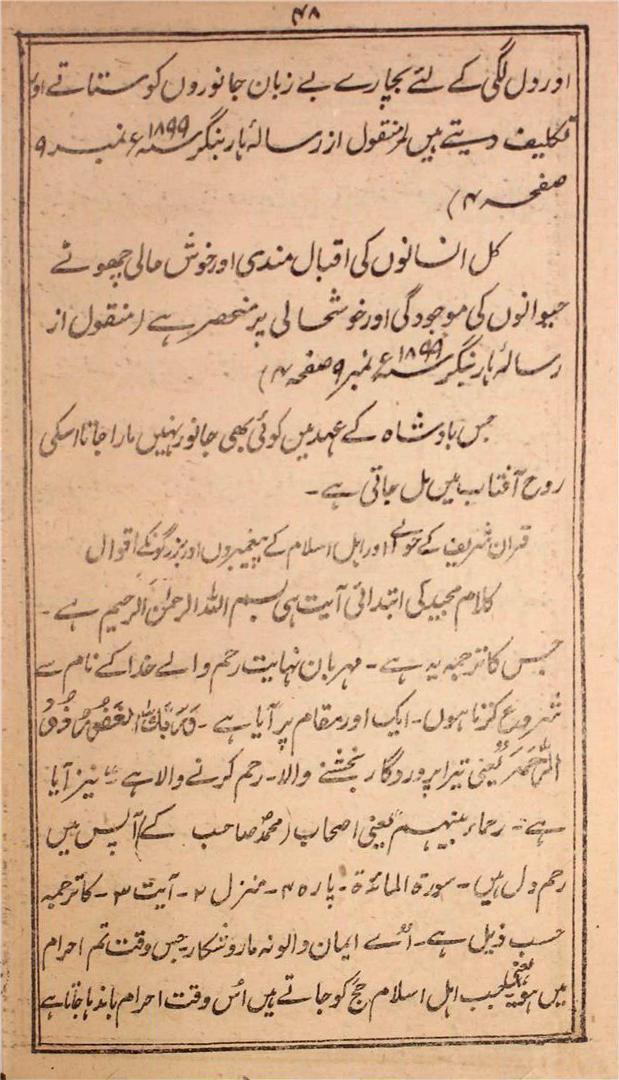 ۴۸
اور دل لگی کے لئے بچارے بے زبان جانوروں کو ستاتے اور
تکلیف دیتے ہیں (منقول از رسالہٴ ہاربنگر ۱۸۹۹ء نمبر ۹
صفحہ ۴)
کل انسانوں کی اقبال مندی اور خوش حالی چھوٹے
حیوانوں کی موجودگی اور خوشحالی پر منحصر ہے (منقول از
رسالہٴ ہاربنگر ۱۸۹۹ء نمبر ۹ صفحہ ۴)
جس بادشاہ کے عہد میں کوئی بھی جانور نہیں مارا جاتا اسکی
روح آفتاب میں مل جاتی ہے۔
قرآن شریف کے حوالے اور اہل اسلام کے پیغمبروں اور بزرگونکے اقوال
کلام مجید کی ابتدائی آیت ہی بسم اللہ الرحمٰن الرحیم ہے۔
جس کا ترجمہ یہ ہے۔ مہربان نہایت رحم والے خدا کے نام سے
شروع کرتا ہوں۔ ایک اور مقام پر آیا ہے۔ وَرَبُّكَ الْغَفُوْرُ ذُو
الرَّحْمَةِ یعنی تیرا پروردگار بخشنے والا۔ رحم کرنے والا ہے" نیز آیا
ہے۔ رحماء بینہم یعنی اصحاب (محمدؐ صاحب کے) آپس میں
رحم دل ہیں۔ سورۃ المائدۃ۔ پارہ ۴۔ منزل ۲۔ آیت ۳۔ کا ترجمہ
حسب ذیل ہے۔ "اے ایمان والو نہ مارو شکار جس وقت تم احرام
میں ہو" یعنی جب اہل اسلام حج کو جاتے ہیں اُس وقت احرام باندھا جاتا ہے